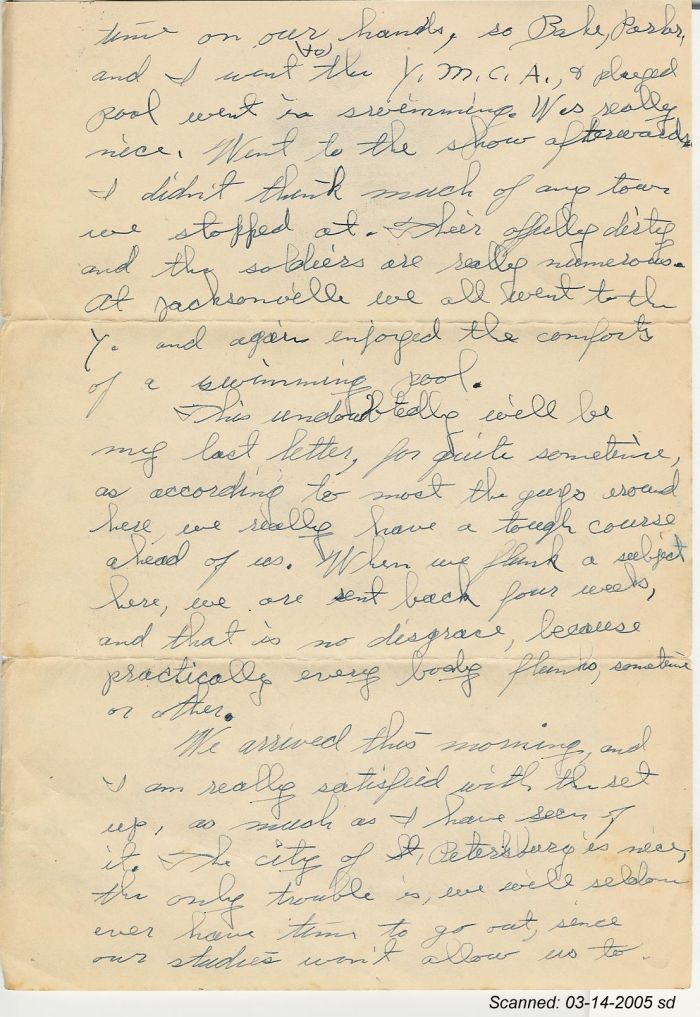 time on our hands, so Bake, Parker,
and I went (to) the Y.M.C.A., & played
pool went in swimming. Was really
nice. Went to the show afterwards.
I didn't think much of any town
we stopped at. Their offully dirty
and the soldiers are really numerous.
At Jacksonville we all went to the
Y. and again enjoyed the comforts
of a swimming pool.
This undoubtedly will be
my last letter, for quite sometime,
as according to most the guys around
here we really have a tough course
ahead of us. When we flunk a subject
here, we are sent back four weeks,
and that is no disgrace, because
practically every body flunks, sometime
or other.
We arrived this morning, and
I am really satisfied with the set
up, as much as I have seen of
it. The city of St. Petersburg is nice,
the only trouble is, we will seldom
ever have time to go out, since
our studies won't allow us to.
Scanned: 03-14-2005 sd